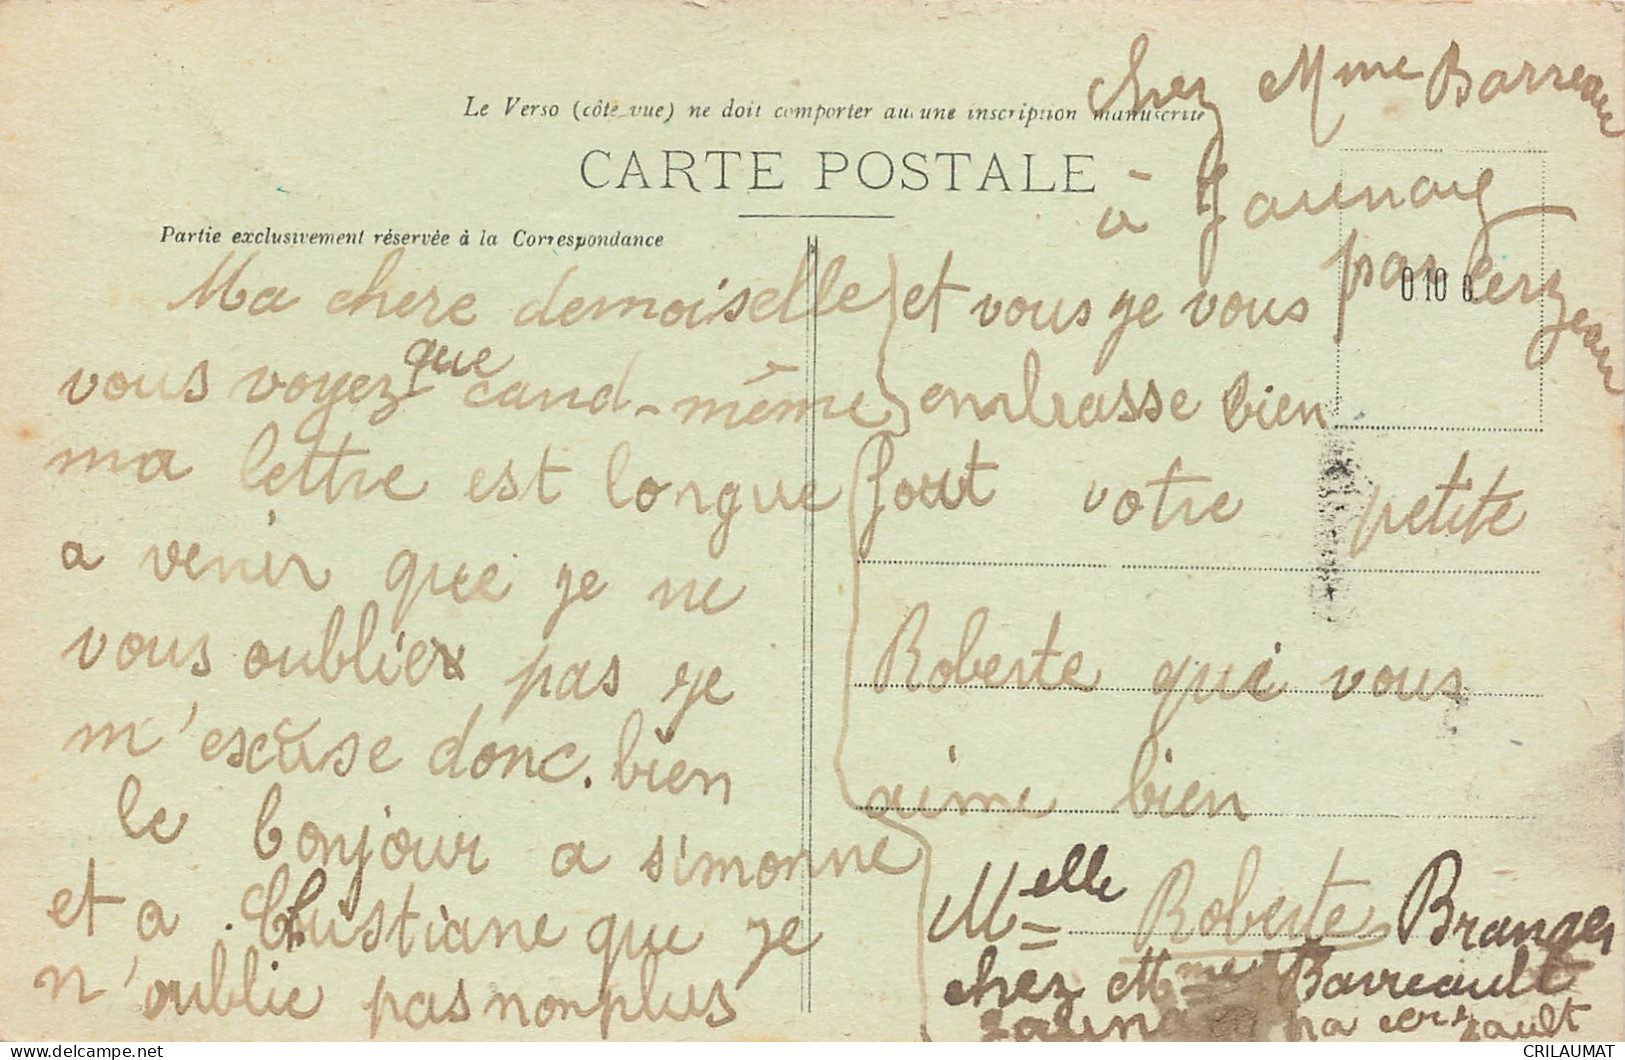 chez Mme Barreau
Le Verso (côté vue) ne doit comporter aucune inscription manuscrite
CARTE POSTALE
à Jaunay
par Cerizeau
0.10
Partie exclusivement réservée à la Correspondance
Ma chere demoiselle
vous voyez que cand-même
ma lettre est longue
a venir que je ne
vous oublie pas je
m'escuse donc. bien
le bonjour a simonne
et a. Christiane que je
n'oublie pas non plus
et vous je vous
embrasse bien
fort votre petite
Roberte qui vous
aime bien
Melle Roberte Branger
chez Mme Barreault
pa
CRILAUMAT